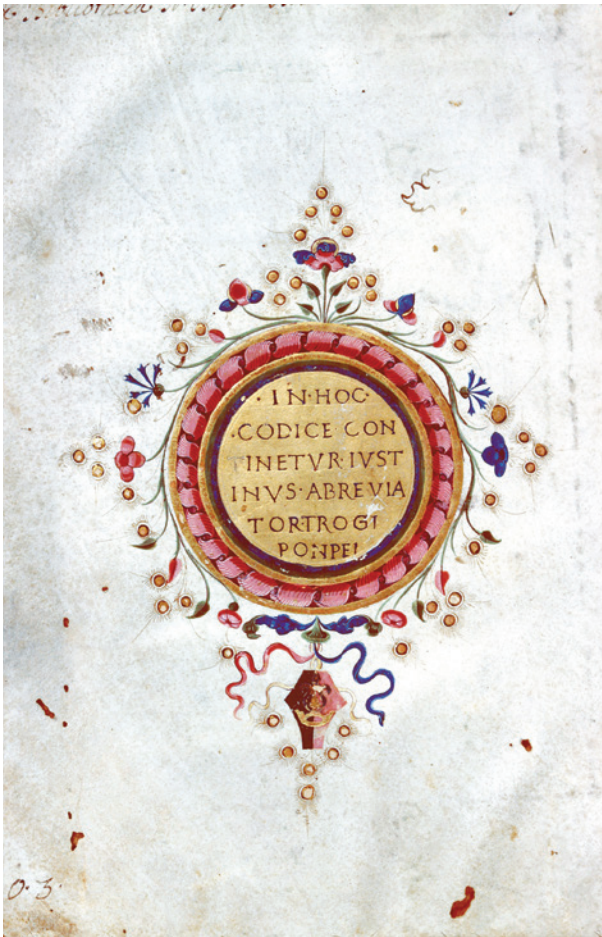 ·IN·HOC·
·CODICE CON
INETVR·IVST
INVS·ABREVIA
TOR·TROGI
PONPEI
O. 3.